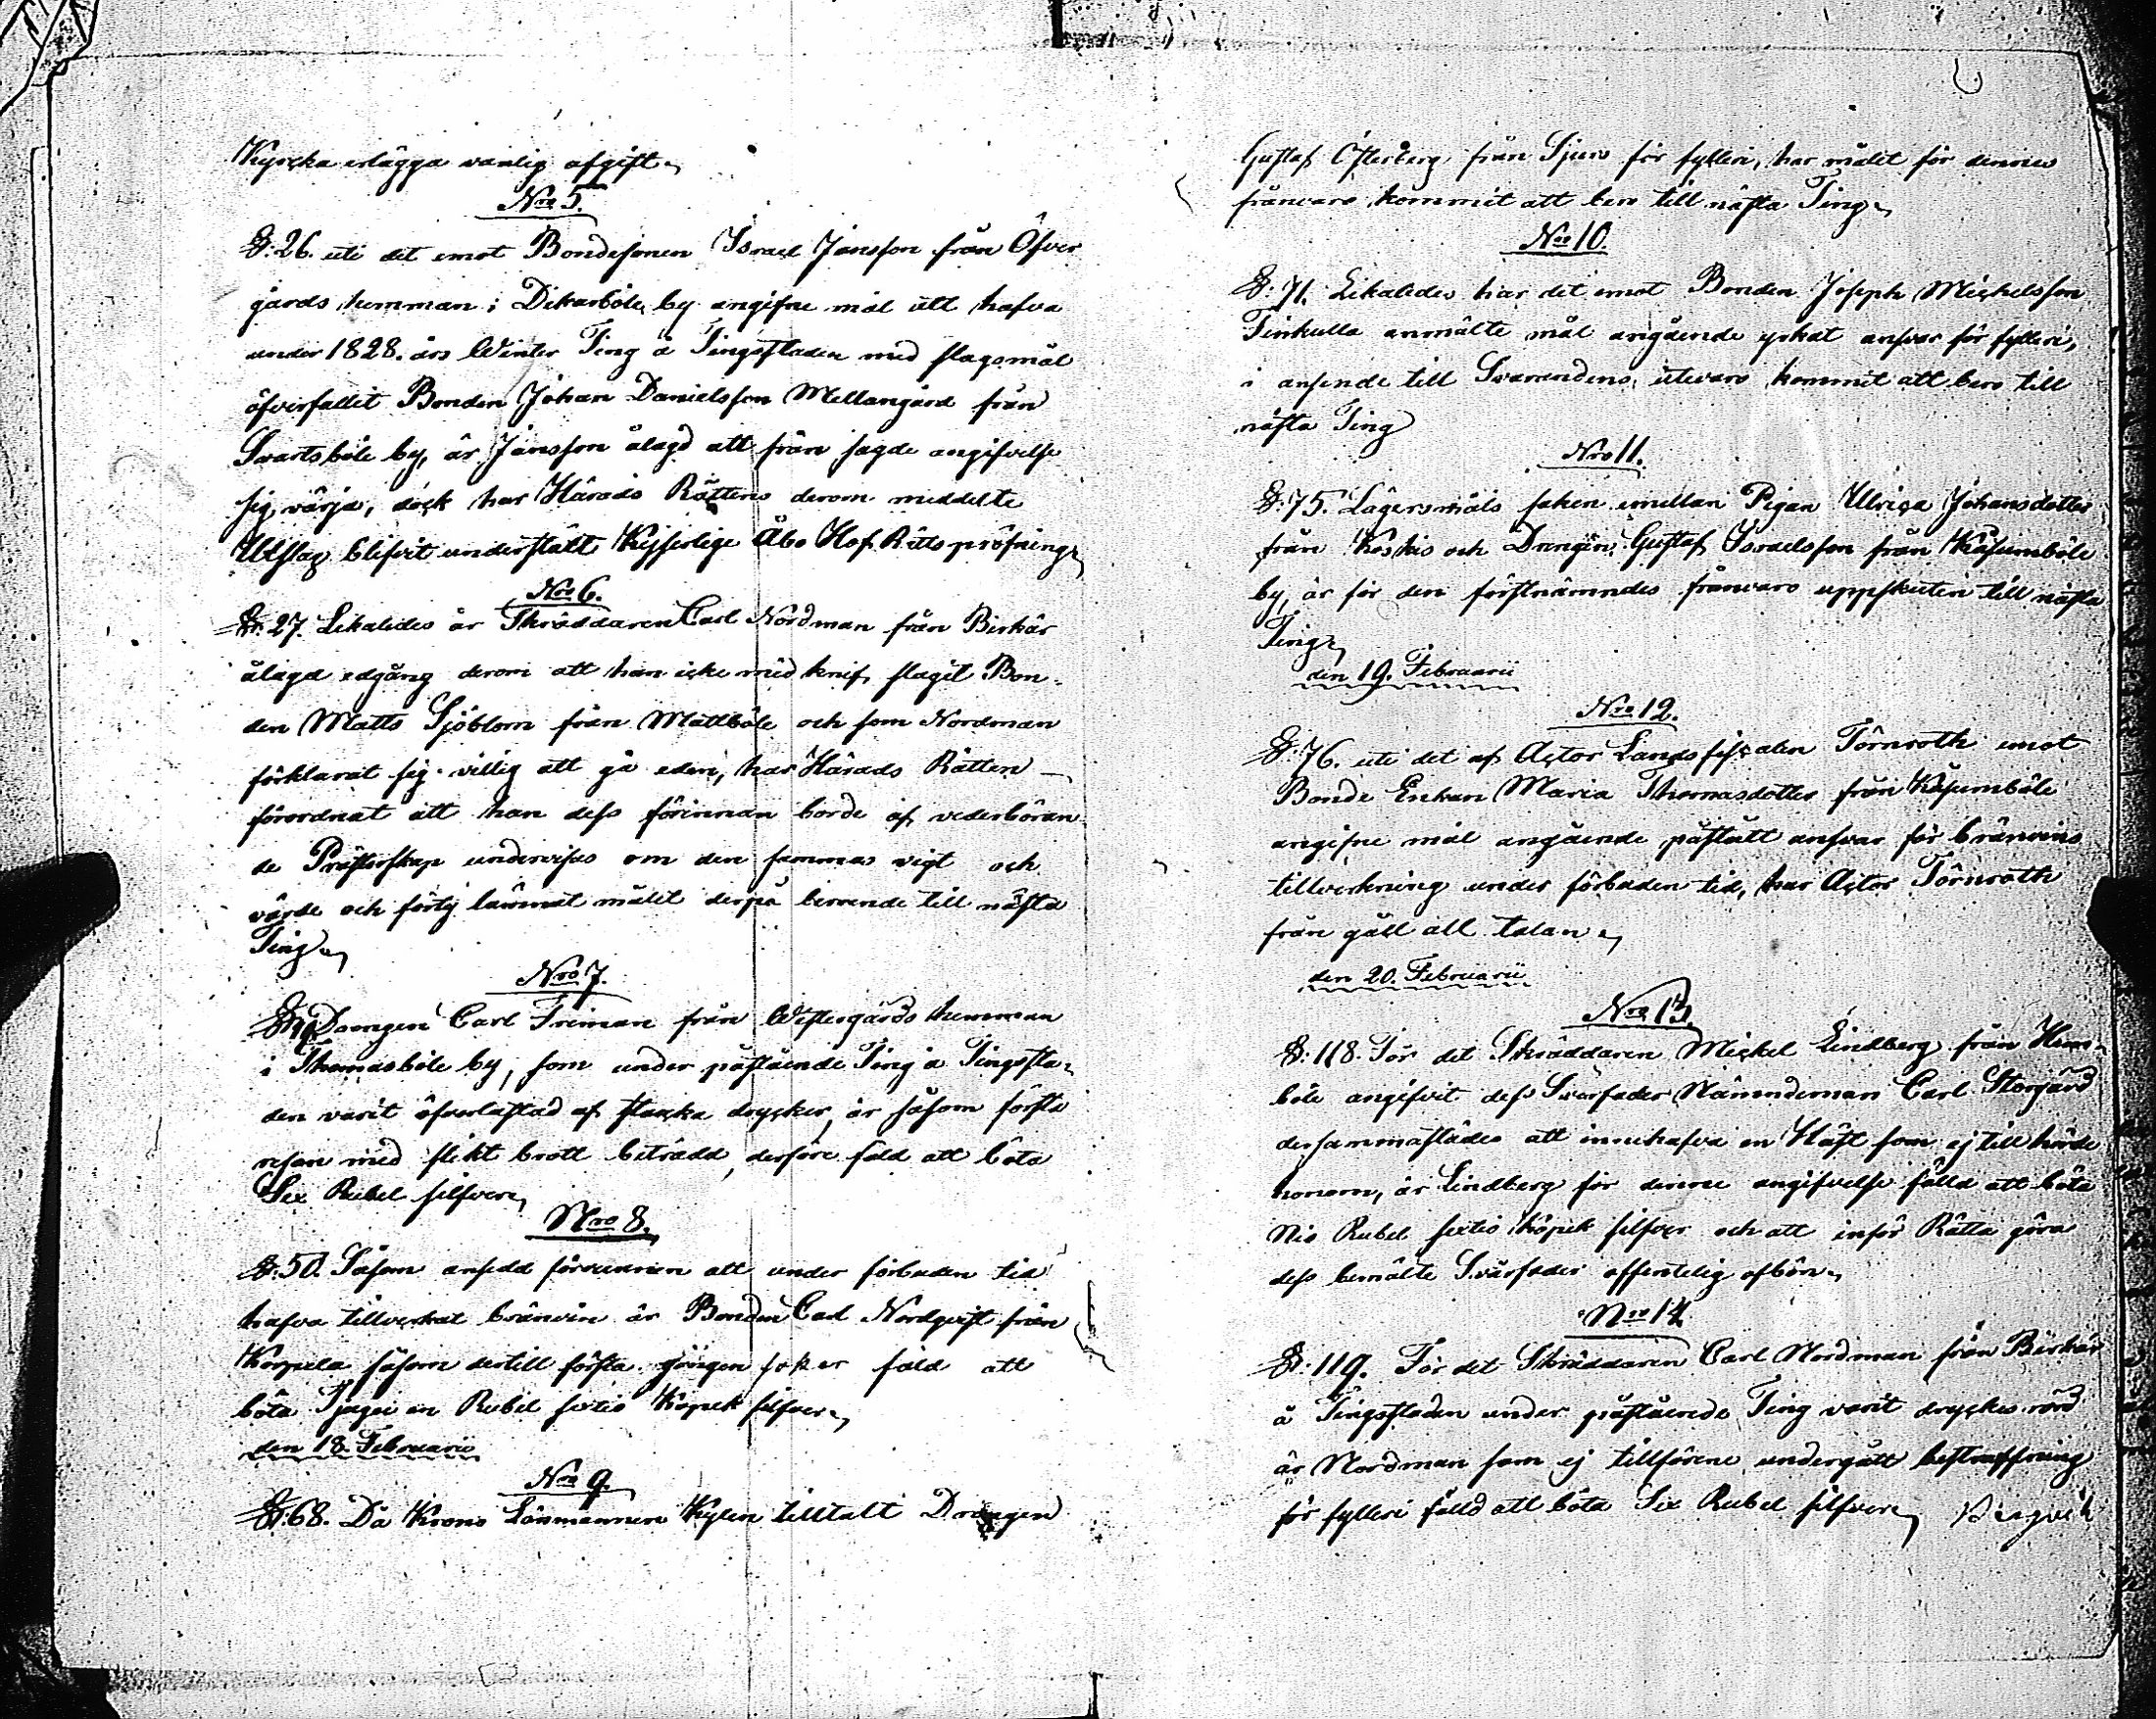 Kyrcka erlägga vanlig afgift.
Nro 5.
§. 26. uti det emot Bondesonen Israel Jansson från Öfver
gårds hemman i Dikarböle by angifne mål att hafva
under 1828. års Winter Ting å Tingsstaden med slagsmål
öfverfallit Bonden Johan Danielsson Mellangård från
Svartsböle by, är Jansson ålagd att från sagde angifvelse
sig värja, dock har Härads Rättens derom meddelte
Utslag blifvit underställt Kejserlige Åbo Hof Rätts pröfning
Nro 6.
§. 27. Likaledes är Skräddaren Carl Nordman från Birkär
ålagd edgång derom att han icke med knif slagit Bon-
den Matts Sjöblom från Mattböle och som Nordman
förklarat sig villig att gå eden, har Härads Rätten
förordnat att han dess förinnan borde af vederböran-
de Prästerskap undervisas om den sammas vigt och
värde och förty lämnat målet derpå beroende till nästa
Ting
Nro 7.
Drengen Carl Friman från Westergårds hemman
i Thomasböle by, som under påstående Ting å Tingssta-
den varit öfverlastad af starcka drycker, är såsom första
resan med slikt brott beträdd, derföre fäld att böta
Sex Rubel silfver
Nro 8.
§. 50. Såsom ansedd förvunnen att under förbuden tid
hafva tillverkat bränvin är Bonden Carl Nordqvist från
Korpela såsom dertill första gången saker fäld att
böta Tjugu en Rubel sextio Kopek silfver
den 18. Februarii
Nro 9.
§. 68. Då Krono Länsmannen Kylen tilltalt Drängen
Gustaf Österberg från Sjurs för fylleri, har målet för dennes
frånvaro kommit att bero till nästa Ting
Nro 10.
§. 71. Likaledes har det emot Bonden Joseph Michelsson
Finkulla anmälte mål angående yrkat ansvar för fylleri,
i anseende till Svarandens utevaro kommit att bero till
nästa Ting
Nro 11.
§. 75. Lägersmåls saken emellan Pigan Ulrica Johansdotter
från Koskis och Drengen Gustaf Israelsson från Käsumböle
by, är för den förstnämndes frånvaro uppskuten till nästa
Ting
den 19. Februarii
Nro 12.
§. 76. uti det af Actor Landsfiscalen Törnroth emot
Bonde Enkan Maria Thomasdotter från Käsumböle
angifne mål angående påstått ansvar för bränvins
tillverkning under förbuden tid, har Actor Törnroth
från gått all talan
den 20. Februarii
Nro 13.
§. 118. För det Skräddaren Mickel Lindberg från
böle angifvit dess Svärfader Nämndeman Carl Storgård
dersammastädes att innehafva en Häst som ej till hörde
honom, är Lindberg för denne angifvelse fälld att böta
Nio Rubel sextio Kopek silfver och att inför Rätta göra
dess bemälte Svärfader offentelig afbön
Nro 14
§. 119. För det Skräddaren Carl Nordman från Birkär
å Tingsstaden under påstående Ting varit dryckes rörd
är Nordman som ej tillförene undergått bestraffning
för fylleri fälld att böta Sex Rubel silfver